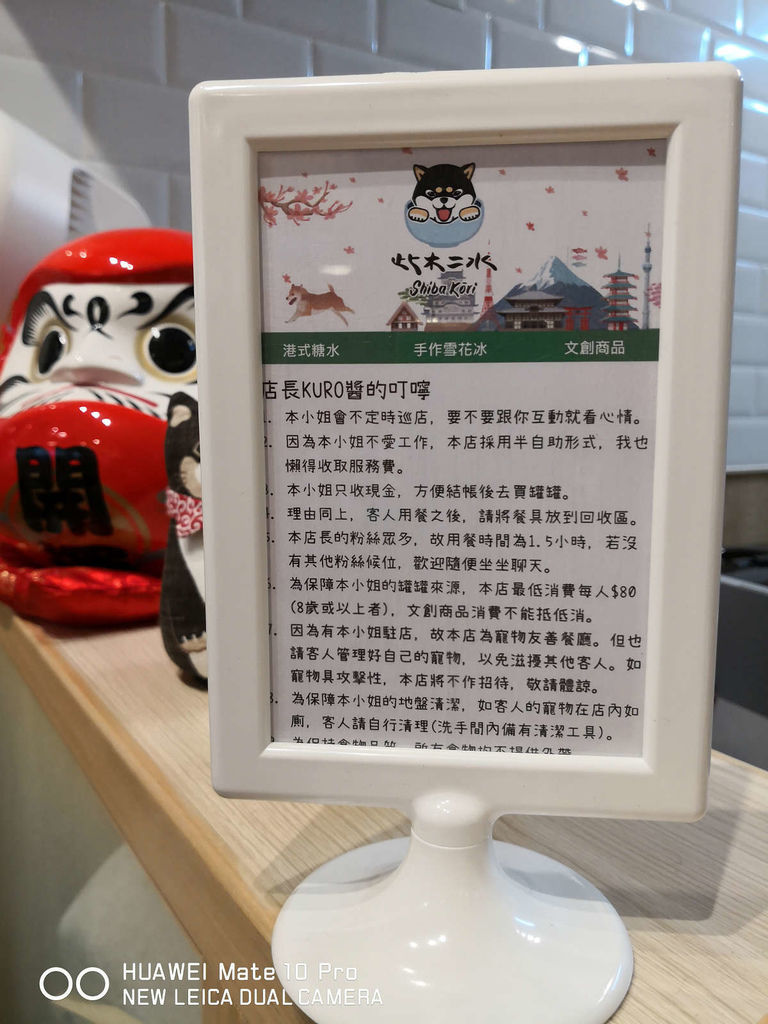 柴木二水
Shiba Kori
港式糖水 手作雪花冰 文創商品
店長KURO醬的叮嚀
1. 本小姐會不定時巡店，要不要跟你互動就看心情。
2. 因為本小姐不愛工作，本店採用半自助形式，我也
懶得收取服務費。
3. 本小姐只收現金，方便結帳後去買罐罐。
4. 理由同上，客人用餐之後，請將餐具放到回收區。
5. 本店長的粉絲眾多，故用餐時間為1.5小時，若沒
有其他粉絲候位，歡迎隨便坐坐聊天。
6. 為保障本小姐的罐罐來源，本店最低消費每人$80
(8歲或以上者)，文創商品消費不能抵低消。
7. 因為有本小姐駐店，故本店為寵物友善餐廳。但也
請客人管理好自己的寵物，以免滋擾其他客人。如
寵物具攻擊性，本店將不作招待，敬請體諒。
8. 為保障本小姐的地盤清潔，如客人的寵物在店內如
廁，客人請自行清理(洗手間內備有清潔工具)。
為保持食物品質，所有食物均不提供外帶
開
HUAWEI Mate 10 Pro
NEW LEICA DUAL CAMERA